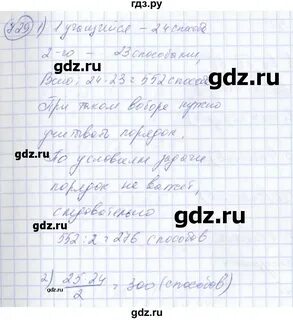 729 1) 1 учащийся – 24 способа
2-го – 23 способами,
Всего: 24·23 = 552 способа
При таком выборе нужно
учитывать порядок.
По условию задачи
порядок не важен,
следовательно
552 : 2 = 276 способов
2) 25·24 / 2 = 300 (способов)
gdz.ru
gdz.ru
gdz.ru
gdz.ru
gdz.ru
gdz.ru
gdz.ru